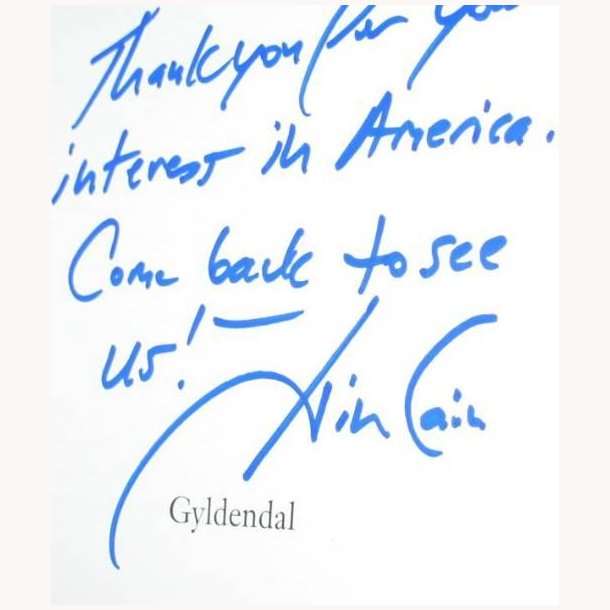 Thank you for you
interest in America.
Come back to see
us! — Jim Cain
Gyldendal